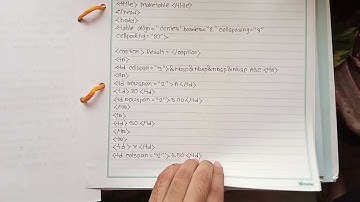 <title> Maketable </title>
</head>
<body>
<table align="center" border="2" cellspacing="4"
cellpading="20">
<caption> Details </caption>
<tr>
<td colspan="3">&nbsp&nbsp&nbsp&nbsp ABC </td>
<tr>
<td rowspan="2"> A </td>
<td> 20 </td>
<td rowspan="2"> </td>
</tr>
<tr>
<td> 50 </td>
</tr>
<tr>
<td> X </td>
<td colspan="2"> </td>